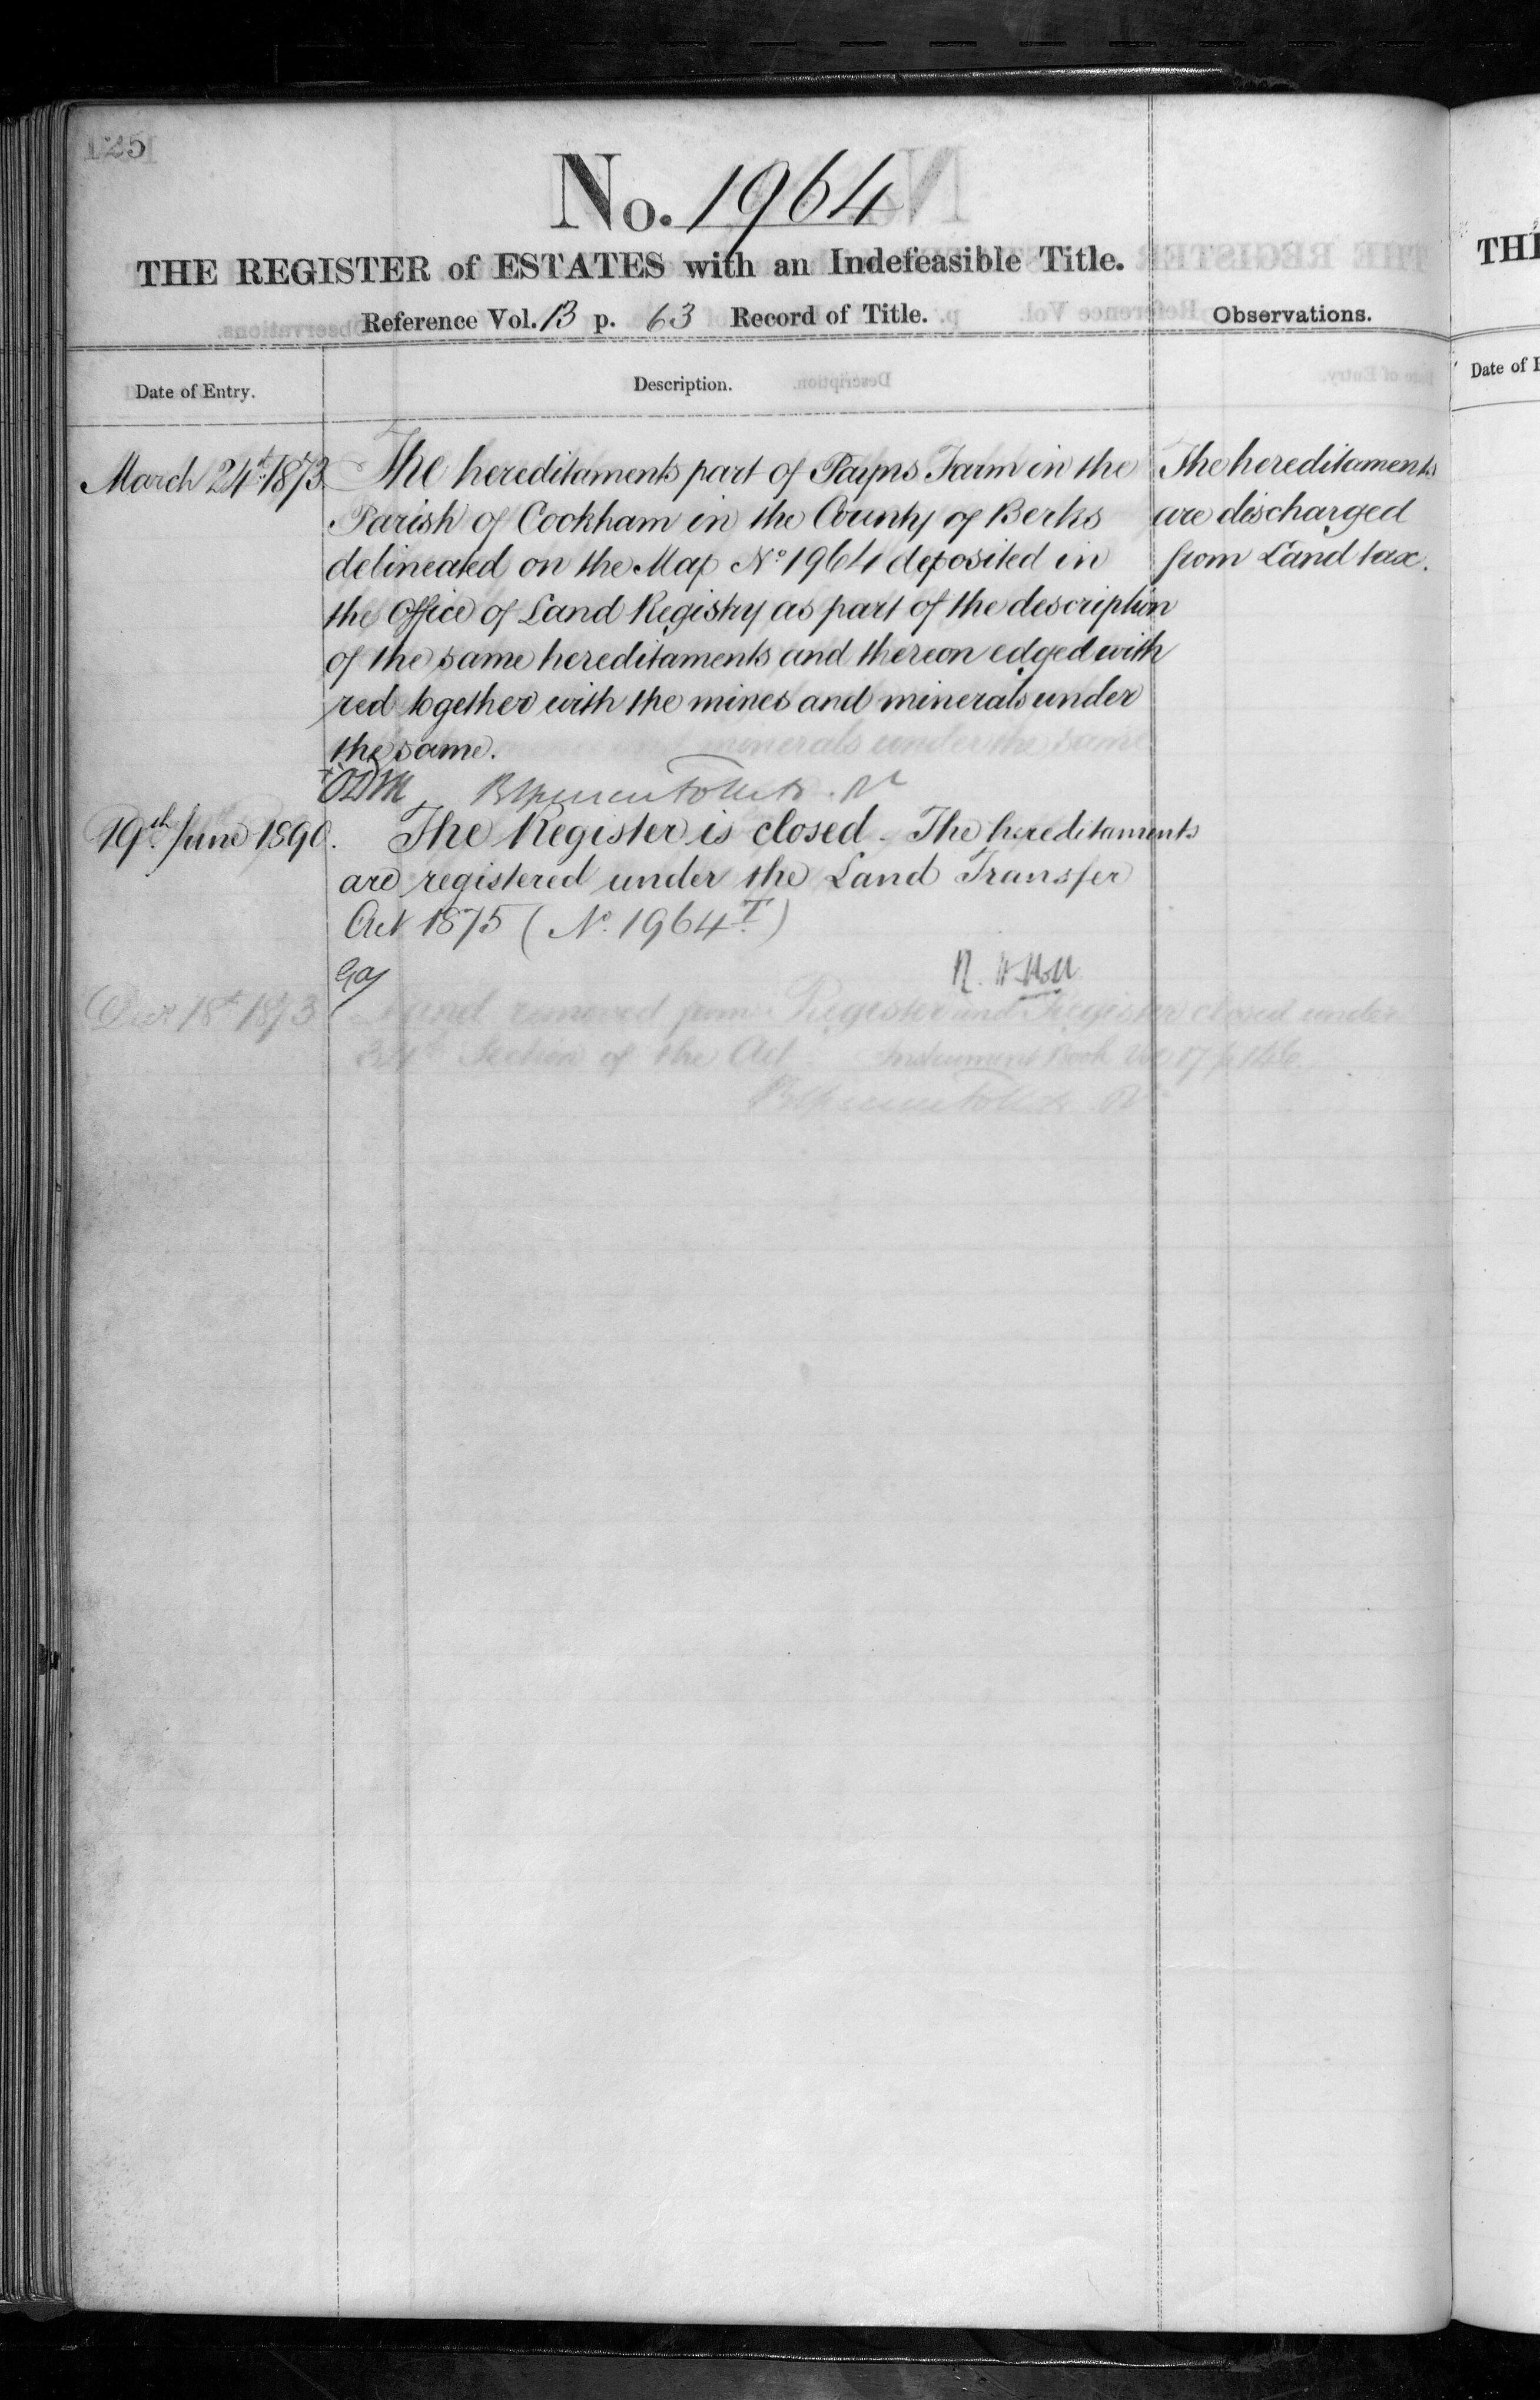 125
No. 1964
THE REGISTER of ESTATES with an Indefeasible Title.
Reference Vol. 13 p. 63 Record of Title.
Observations.
Date of Entry.
Description.
March 24th 1873
The hereditaments part of Payns Farm in the
Parish of Cookham in the County of Berks
delineated on the Map No 1964 deposited in
the Office of Land Registry as part of the description
of the same hereditaments and thereon edged with
red together with the mines and minerals under
the same.
The hereditaments
are discharged
from Land tax.
19th June 1890.
The Register is closed. The hereditaments
are registered under the Land Transfer
Act 1875 (No. 1964T)
THE
Date of